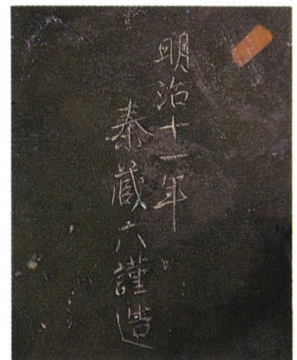 明治十一年
秦蔵六謹造